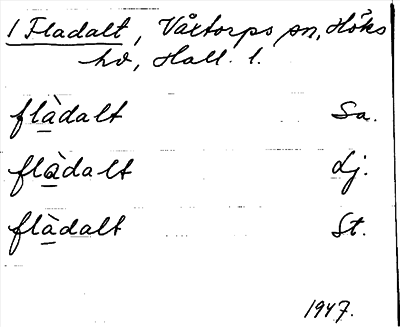 1 Fladalt, Våxtorps sn, Höks
hd, Hall. l.
flàdalt Sa.
flàdalt dj.
flàdalt St.
1947.